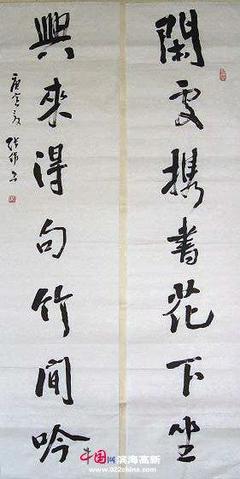 閑處携書花下坐
興來得句竹間吟
庚寅夏
中国网 滨海高新
www.022china.com